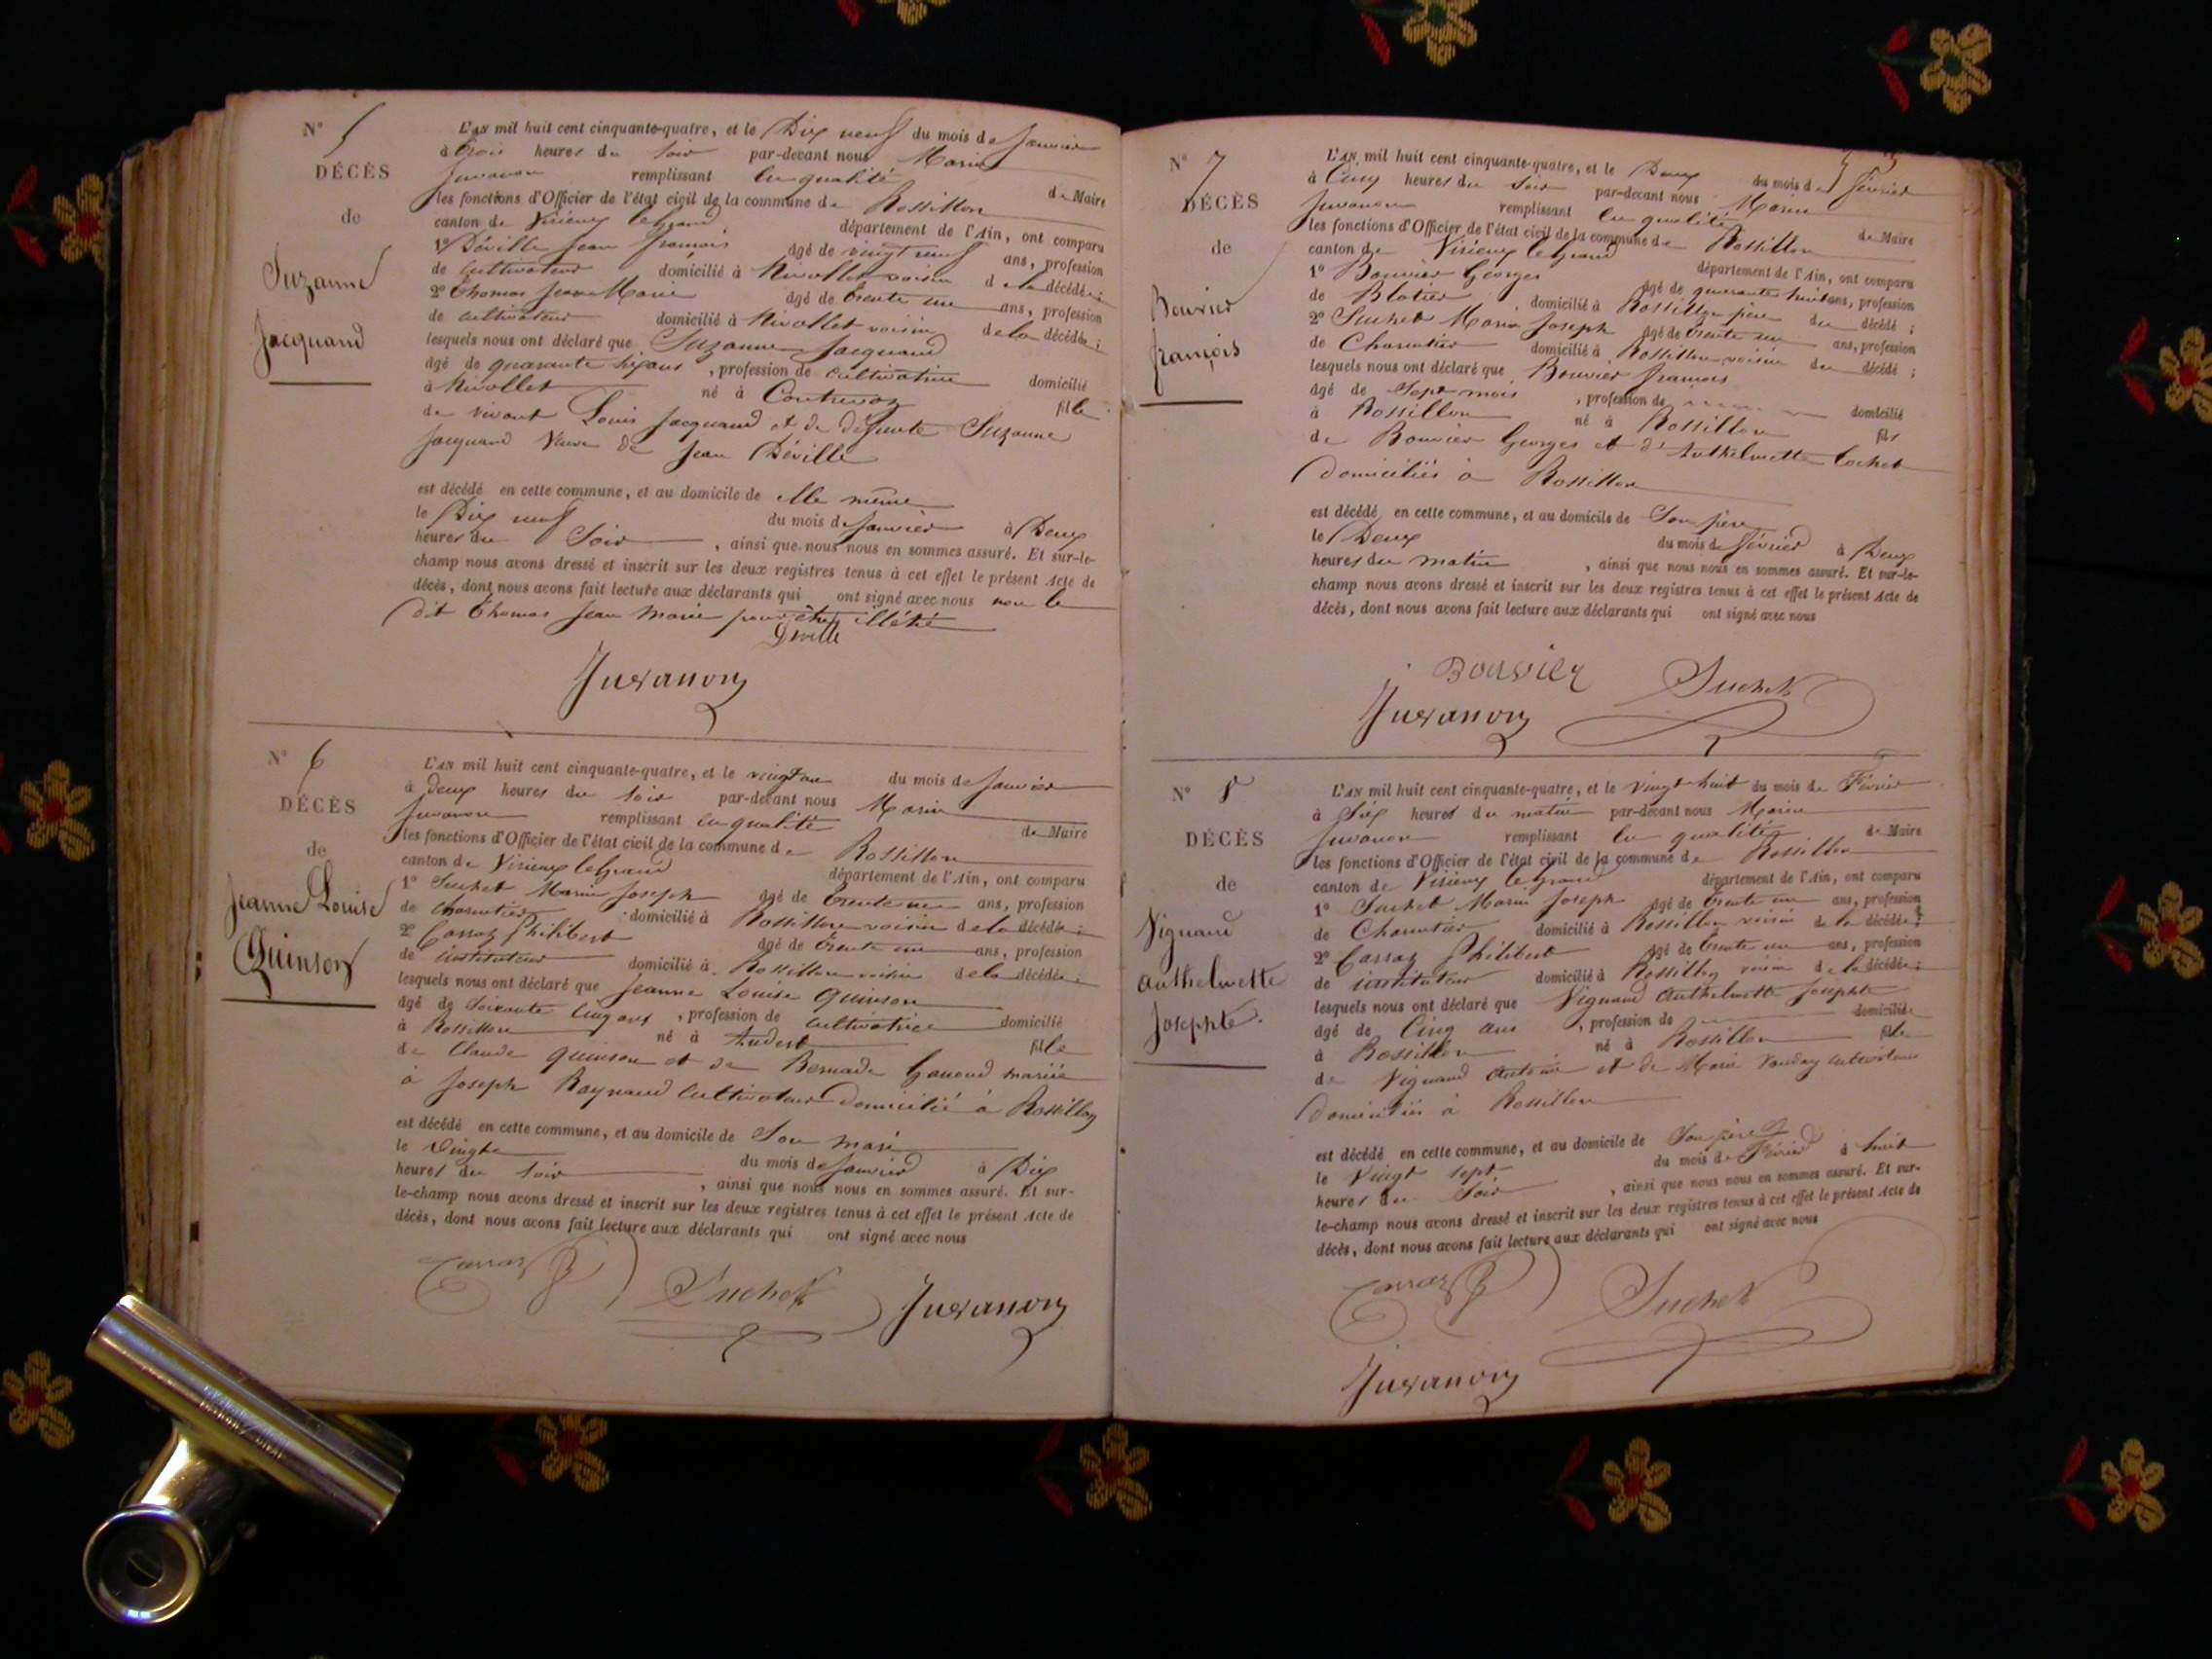 N° 5
DÉCÈS
de
Suzanne
Jacquand
L'AN mil huit cent cinquante-quatre, et le Dix neuf du mois de Janvier
à trois heures du soir par-devant nous Marin
Juvanon remplissant en qualité de Maire
les fonctions d'Officier de l'état civil de la commune de Rossillon
canton de Virieux le grand département de l'Ain, ont comparu
1° Déville Jean François âgé de vingt neuf ans, profession
de cultivateur domicilié à Nivollet voisin de la décédée ;
2° Thomas Jean Marie âgé de trente un ans, profession
de cultivateur domicilié à Nivollet voisin de la décédée ;
lesquels nous ont déclaré que Suzanne Jacquand
âgé de quarante six ans, profession de cultivatrice domicilié
à Nivollet né à Contrevoz fille
de vivant Louis Jacquand et de défunte Suzanne
Jacquand Veuve de Jean Déville
est décédé en cette commune, et au domicile de elle même
le Dix neuf du mois de Janvier à Deux
heures du Soir, ainsi que nous nous en sommes assuré. Et sur-le-
champ nous avons dressé et inscrit sur les deux registres tenus à cet effet le présent Acte de
décès, dont nous avons fait lecture aux déclarants qui ont signé avec nous non le
dit Thomas Jean Marie pour être illétré
Deville
Juvanon
N° 6
DÉCÈS
de
Jeanne Louise
Quinson
L'AN mil huit cent cinquante-quatre, et le vingt un du mois de Janvier
à Deux heures du soir par-devant nous Marin
Juvanon remplissant en qualité de Maire
les fonctions d'Officier de l'état civil de la commune de Rossillon
canton de Virieux le grand département de l'Ain, ont comparu
1° Suchet Marin Joseph âgé de trente un ans, profession
de charcutier domicilié à Rossillon voisin de la décédée ;
2° Carraz Philibert âgé de trente un ans, profession
de instituteur domicilié à Rossillon voisin de la décédée ;
lesquels nous ont déclaré que Jeanne Louise Quinson
âgé de Soixante cinq ans, profession de cultivatrice domicilié
à Rossillon né à Andert fille
de Claude Quinson et de Bernade mariée
à Joseph Raynaud cultivateur domicilié à Rossillon
est décédé en cette commune, et au domicile de Son mari
le vingt du mois de Janvier à Dix
heures du soir, ainsi que nous nous en sommes assuré. Et sur-
le-champ nous avons dressé et inscrit sur les deux registres tenus à cet effet le présent Acte de
décès, dont nous avons fait lecture aux déclarants qui ont signé avec nous
Carraz P Suchet Juvanon
N° 7
DÉCÈS
de
Bouvier
françois
L'AN mil huit cent cinquante-quatre, et le Deux du mois de février
à Cinq heures du Soir par-devant nous Marin
Juvanon remplissant en qualité de Maire
les fonctions d'Officier de l'état civil de la commune de Rossillon
canton de Virieux le grand département de l'Ain, ont comparu
1° Bouvier Georges âgé de quarante huit ans, profession
de Blatier domicilié à Rossillon père du décédé ;
2° Suchet Marin Joseph âgé de trente un ans, profession
de Charcutier domicilié à Rossillon voisin du décédé ;
lesquels nous ont déclaré que Bouvier françois
âgé de Sept mois, profession de domicilié
à Rossillon né à Rossillon fils
de Bouvier Georges et d'Anthelmette Cochet
domiciliés à Rossillon
est décédé en cette commune, et au domicile de Son père
le Deux du mois de février à Deux
heures du matin, ainsi que nous nous en sommes assuré. Et sur-le-
champ nous avons dressé et inscrit sur les deux registres tenus à cet effet le présent Acte de
décès, dont nous avons fait lecture aux déclarants qui ont signé avec nous
Bouvier Suchet
Juvanon
N° 8
DÉCÈS
de
Vignand
Anthelmette
Josephte.
L'AN mil huit cent cinquante-quatre, et le vingt huit du mois de Février
à Six heures du matin par-devant nous Marin
Juvanon remplissant en qualité de Maire
les fonctions d'Officier de l'état civil de la commune de Rossillon
canton de Virieux le grand département de l'Ain, ont comparu
1° Suchet Marin Joseph âgé de trente un ans, profession
de Charcutier domicilié à Rossillon voisin de la décédée ;
2° Carraz Philibert âgé de trente un ans, profession
de instituteur domicilié à Rossillon voisin de la décédée ;
lesquels nous ont déclaré que Vignand Anthelmette Josephte
âgé de Cinq ans, profession de domicilié
à Rossillon né à Rossillon fille
de Vignand Antoine et de Marie cultivateurs
Domiciliés à Rossillon
est décédé en cette commune, et au domicile de Son père
le Vingt sept du mois de Février à huit
heures du Soir, ainsi que nous nous en sommes assuré. Et sur-
le-champ nous avons dressé et inscrit sur les deux registres tenus à cet effet le présent Acte de
décès, dont nous avons fait lecture aux déclarants qui ont signé avec nous
Carraz P Suchet
Juvanon